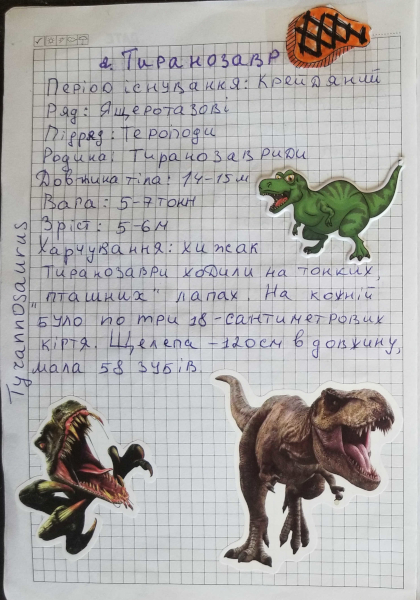 2. Тиранозавр
Період існування: Крейдяний
Ряд: Ящеротазові
Підряд: Тероподи
Родина: Тиранозавриди
Довжина тіла: 14-15м
Вага: 5-7тонн
Зріст: 5-6м
Харчування: хижак
Тиранозаври ходили на тонких,
"пташних" лапах. На кожній
було по три 18-сантиметрових
кігтя. Щелепа -120см в довжину,
мала 58 зубів.
Tyrannosaurus